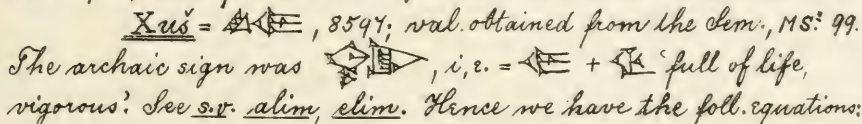 Xuš = , 8597; val. obtained from the Sem., MS: 99.
The archaic sign was , i, e. = + 'full of life,
vigorous'. See s.v. alim, elim. Hence we have the foll. equations: